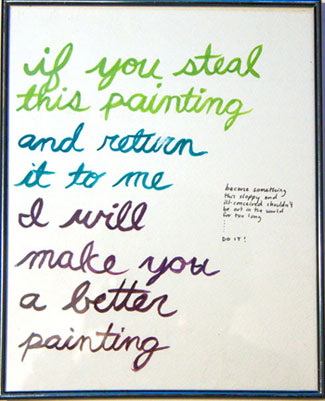 if you steal
this painting
and return
it to me
I will
make you
a better
painting
because something
this sloppy and
ill-conceived shouldn't
be out in the world
for too long
.
.
.
DO IT!